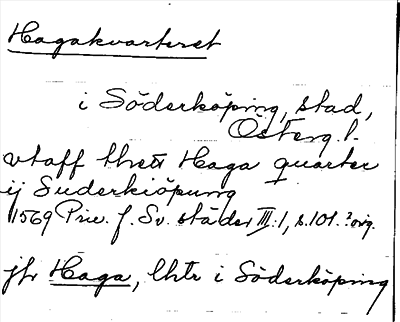 Hagakvarteret
i Söderköping, stad,
Österg. l.
vtaff thett Haga quarter
ij Suderkiöpung
1569 Priv. f. Sv. städer III:1, s. 101. ? orig.
jfr Haga, lht i Söderköping